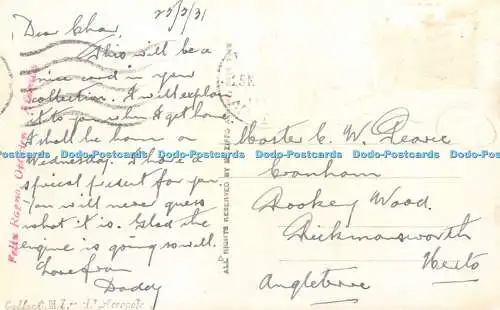 25/3/31
Dear Char,
This will be a
nice card in your
collection. I will explain
it to you when I get home
I shall be home on
Wednesday. I have a
special present for you.
You will never guess
what it is. Glad the
engine is going so well.
Love from
Daddy
Master C. W. Pearce
Cranham
Rookey Wood.
Rickmansworth
Herts
Angleterre
ALL RIGHTS RESERVED BY
Dodo-Postcards Dodo-Postcards Dodo-Postcards Dodo-Postcards Dodo-Postcards Dodo-Postcards